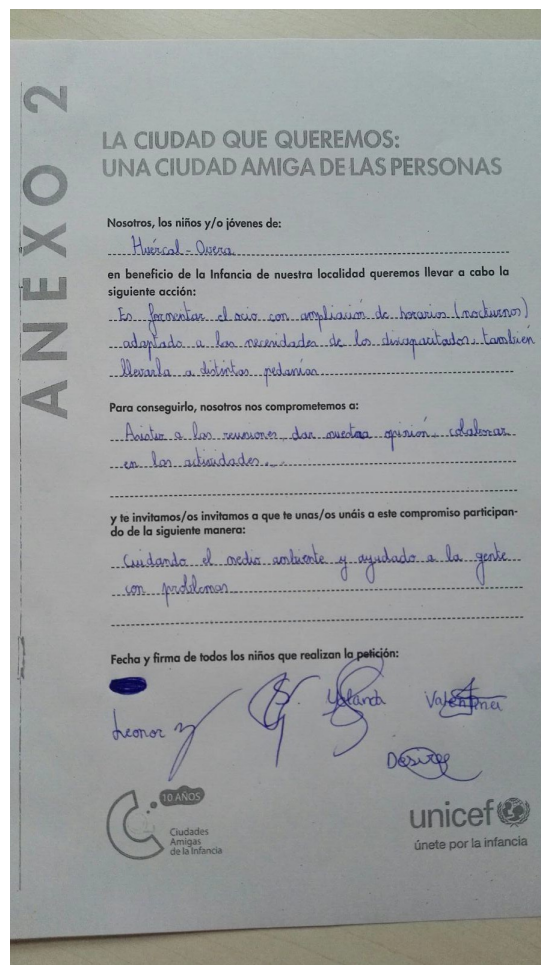 ANEXO 2
LA CIUDAD QUE QUEREMOS:
UNA CIUDAD AMIGA DE LAS PERSONAS
Nosotros, los niños y/o jóvenes de:
Huércal-Overa
en beneficio de la Infancia de nuestra localidad queremos llevar a cabo la
siguiente acción:
Es fomentar el ocio con ampliación de horarios (nocturnos)
adaptado a las necesidades de los discapacitados, también
llevarla a distintas pedanías
Para conseguirlo, nosotros nos comprometemos a:
Asistir a las reuniones, dar nuestra opinión, colaborar
en las actividades...
y te invitamos/os invitamos a que te unas/os unáis a este compromiso participan-
do de la siguiente manera:
Cuidando el medio ambiente y ayudado a la gente
con problemas
Fecha y firma de todos los niños que realizan la petición:
Leonor
Yolanda
Valentina
Desiree
10 AÑOS
Ciudades
Amigas
de la Infancia
unicef
únete por la infancia